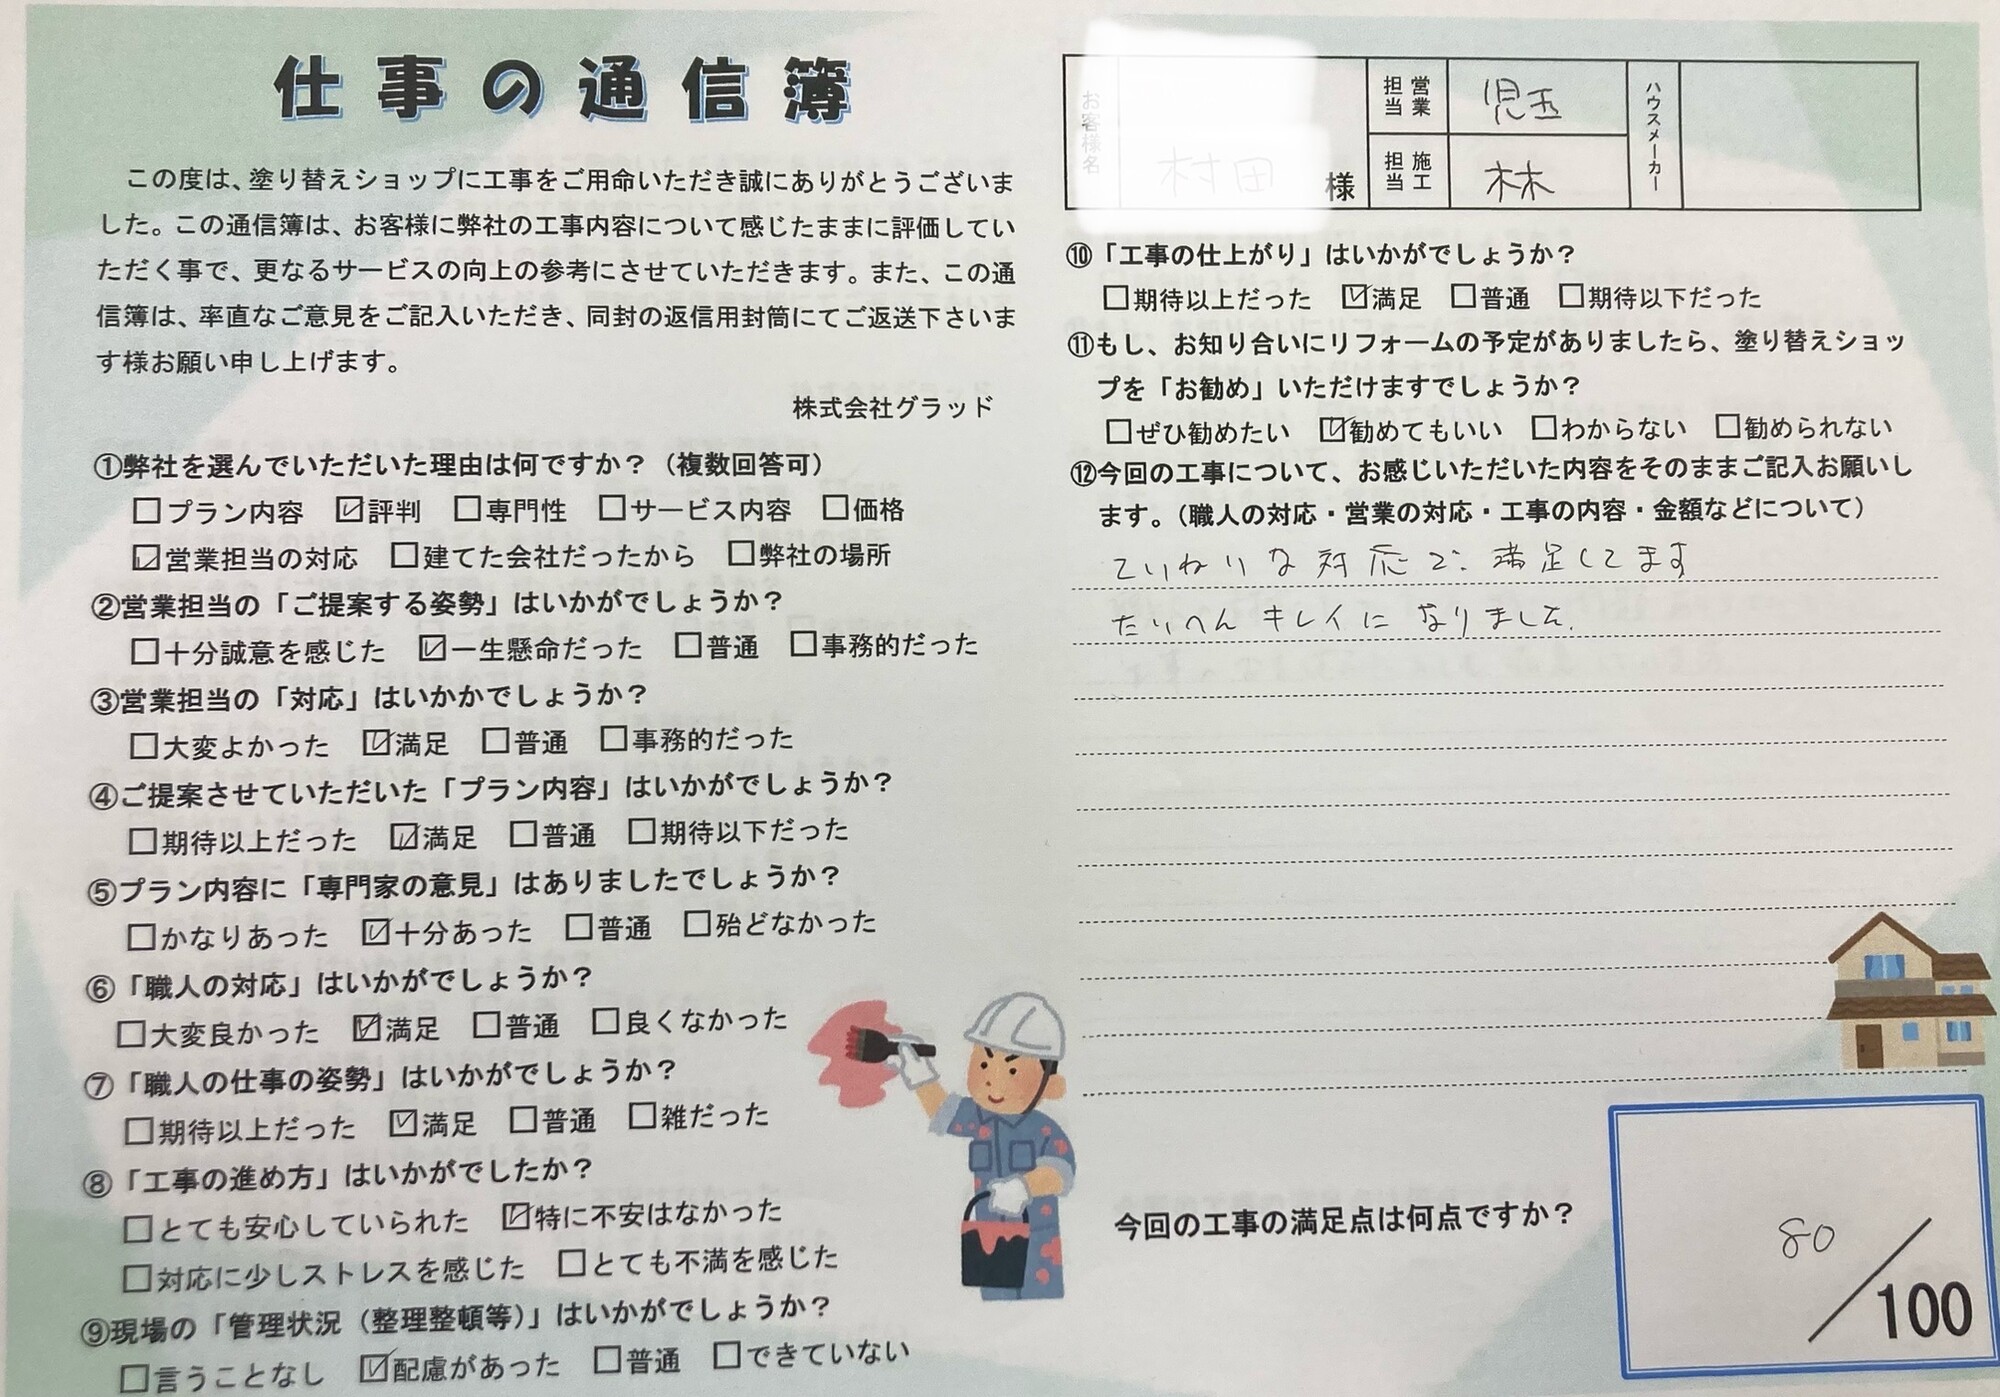 仕事の通信簿
この度は、塗り替えショップに工事をご用命いただき誠にありがとうございま
した。この通信簿は、お客様に弊社の工事内容について感じたままに評価してい
ただく事で、更なるサービスの向上の参考にさせていただきます。また、この通
信簿は、率直なご意見をご記入いただき、同封の返信用封筒にてご返送下さいま
す様お願い申し上げます。
株式会社グラッド
①弊社を選んでいただいた理由は何ですか？（複数回答可）
□プラン内容 ☑評判 □専門性 □サービス内容 □価格
☑営業担当の対応 □建てた会社だったから □弊社の場所
②営業担当の「ご提案する姿勢」はいかがでしょうか？
□十分誠意を感じた ☑一生懸命だった □普通 □事務的だった
③営業担当の「対応」はいかかでしょうか？
□大変よかった ☑満足 □普通 □事務的だった
④ご提案させていただいた「プラン内容」はいかがでしょうか？
□期待以上だった ☑満足 □普通 □期待以下だった
⑤プラン内容に「専門家の意見」はありましたでしょうか？
□かなりあった ☑十分あった □普通 □殆どなかった
⑥「職人の対応」はいかがでしょうか？
□大変良かった ☑満足 □普通 □良くなかった
⑦「職人の仕事の姿勢」はいかがでしょうか？
□期待以上だった ☑満足 □普通 □雑だった
⑧「工事の進め方」はいかがでしたか？
□とても安心していられた ☑特に不安はなかった
□対応に少しストレスを感じた □とても不満を感じた
⑨現場の「管理状況（整理整頓等）」はいかがでしょうか？
□言うことなし ☑配慮があった □普通 □できていない
お客様名 村田 様 営業担当 児玉 ハウスメーカー
施工担当 林
⑩「工事の仕上がり」はいかがでしょうか？
□期待以上だった ☑満足 □普通 □期待以下だった
⑪もし、お知り合いにリフォームの予定がありましたら、塗り替えショッ
プを「お勧め」いただけますでしょうか？
□ぜひ勧めたい ☑勧めてもいい □わからない □勧められない
⑫今回の工事について、お感じいただいた内容をそのままご記入お願いし
ます。（職人の対応・営業の対応・工事の内容・金額などについて）
ていねいな対応で満足してます
たいへんキレイになりました.
今回の工事の満足点は何点ですか？
80/100